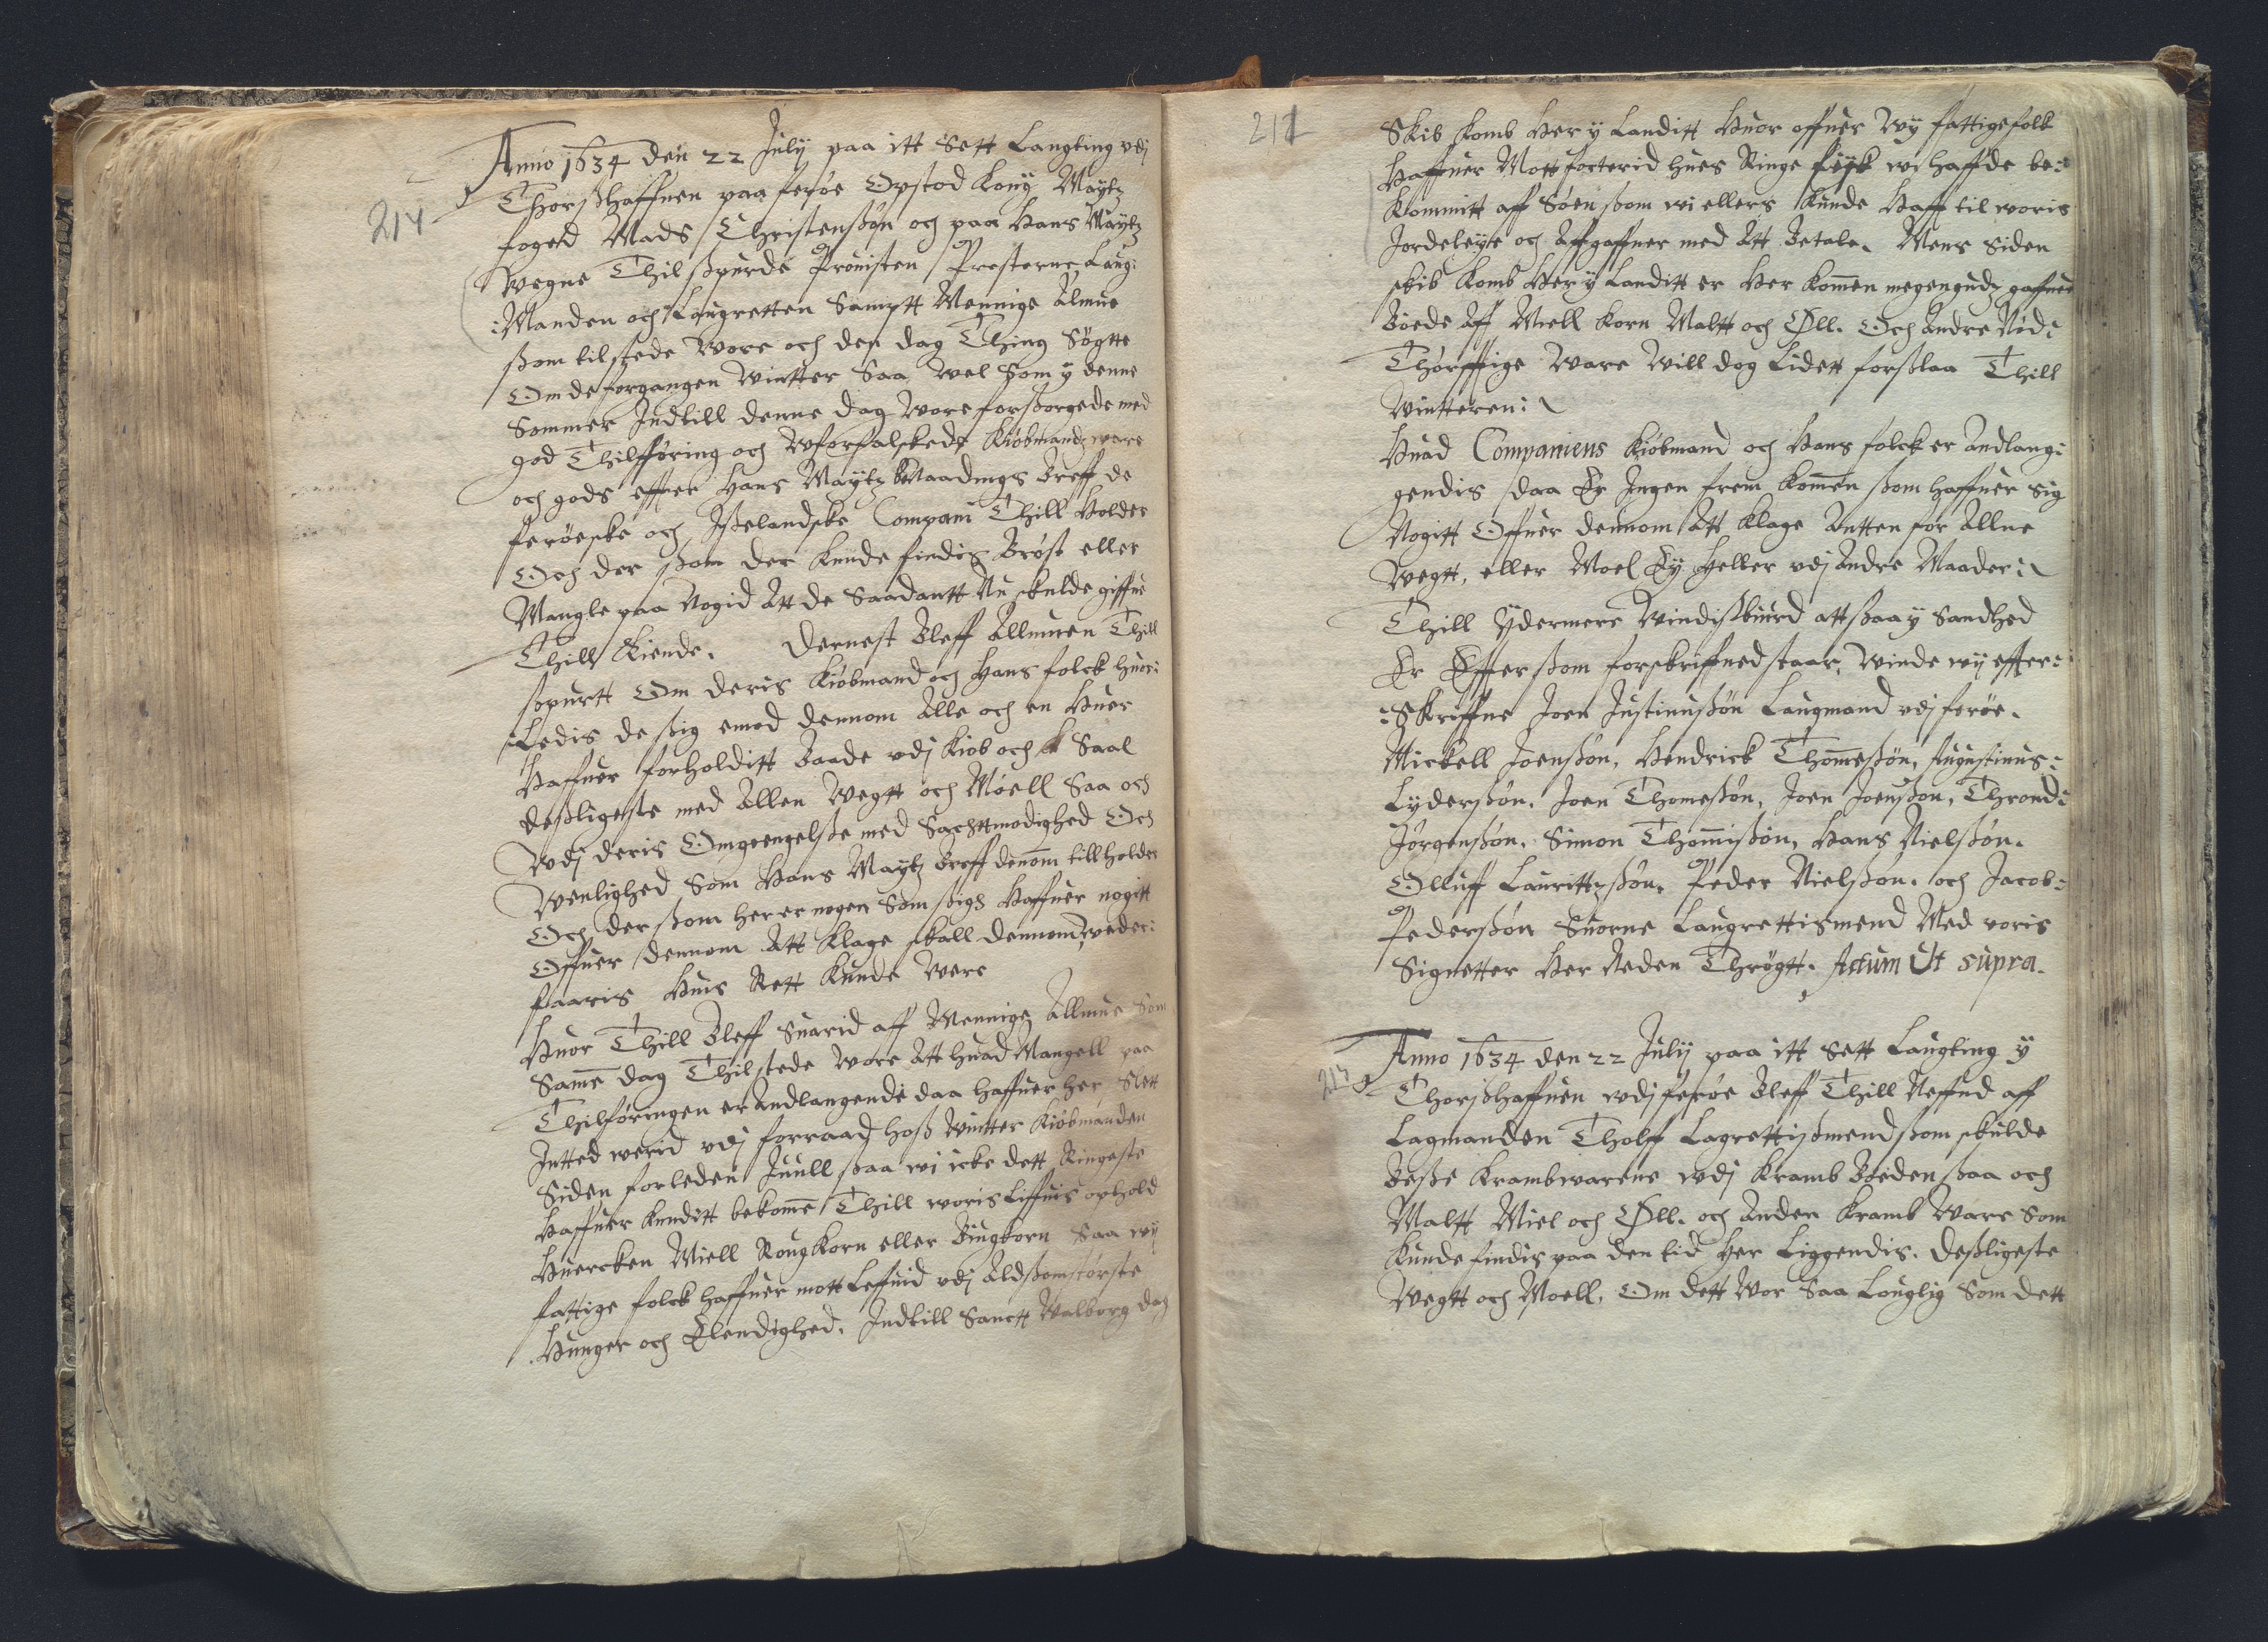 214
Anno 1634 den 22 July paa itt Sett Laugting vdj
Thorßhaffuen paa ferøe Opstod Kong Maytz
foged Mads Christenßøn och paa Hans Maytz
Wegne Thilspurde Prouisten Presterne Laug:
:Manden och Laugretten Samptt Mennige Almue
ßom tilstede Wore och den dag Thing Søgtte
Om de forgangen Wintter Saa Wel som y denne
Sommer Indtill denne dag Wore forßorgede med
god Thilføring och Wforfalskede Kiøbmandz ware
och gods effter Hans Maytz Naadings Breff de
ferøeske och Ißelandske Compani Thill Holder
Och der ßom der Kunde findis Brøst eller
Mangle paa Nogid Att de Saadantt Nu skulde giffue
Thill Kiende. Dernest Bleff Allmuen Thill
spurtt Om deris Kiøbmand och Hans folck huor:
:Ledis de sig emod dennom Alle och en Huer
Haffuer forholditt Baade vdj Kiøb och Saal
deßligeste med Allen Wegtt och Møell Saa och
Wdj deris Omgeengelße med Sachttmodighed Och
Wenlighed Som Hans Maytz Breff denom tillholder
Och der ßom her er nogen Som sigh Haffuer nogitt
Offuer dennom Att Klage skall dennom weder:
faaris Huis Rett Kunde Were
Huor Thill Bleff Suarid aff Mennige Allmue Som
Same dag Thilstede Wore Att huad Mangell paa
Thilføringen er Andlangende daa haffuer her Slett
Intted werid vdj forraad hoß Wintter Kiøbmanden
Siden forleden Juull ßaa wi icke dett Ringeste
Haffuer Kunditt bekome Thill woris Liffuis ophold
Huercken Miell Roug Korn eller Bingkorn Saa wij
fattige folck haffuer mott Leffuid vdj Aldßomstørste
Hunger och Elendighed. Indtill Sanctt Walborg dag
211
Skib komb Her y Landitt Huor offuer Wy fattige folk
Haffuer Mott forterid hues Ringe fisk wi haffde be:
Kommitt aff Søen ßom wi ellers Kunde Haff til woris
Jordeleye och Affgaffuer med Att Betale. Mens Siden
skib Komb Her y Landitt er Her komen megengudz gaffuer
Boede Aff Miell Korn Maltt och Øll. Och Andre Nød:
Thørfftige Ware Will dog Lidett forßlaa Thill
Wintteren:
Huad Companiens Kiøbmand och Hans folck er Andlang:
gendis daa Er Ingen frem Komen ßom haffuer sig
Nogitt Offuer dennom Att Klage Antten for Allne
Wegtt, eller Moel Ey Heller vdj Andre Maader:
Thill Ydermere Windisbiurd att ßaa y Sandhed
Er Effter ßom forskriffued staar, Winde wy effter:
:Skriffne Joen Justinußøn Laugmand vdj ferøe.
Mickell Joenßøn, Hendrick Thomeßøn, Augustinus:
Lyderßøn. Joen Thomeßøn, Joen Joenßøn, Thrond:
Jørgenßøn. Simon Thomißøn, Hans Nielßøn.
Olluff Laurittzßøn. Peder Nielßøn. och Jacob:
Pederßøn Suorne Laugrettismend Med voris
Signetter Her Neden Thrøgtt. Actum Ut supra.
215
Anno 1634 den 22 July paa itt Sett Laugting y
Thorßhaffuen wdj ferøe Bleff Thill Neffnd aff
Lagmanden Tholff Lagrettißmend ßom skulde
Beße Krambwarene wdj Kramb Boeden ßaa och
Maltt Miel och Øll. och Anden Kramb Ware Som
Kunde findis paa den tid Her Liggendis. Deßligeste
Wegtt och Moell. Om dett Wor Saa Louglig Som dett